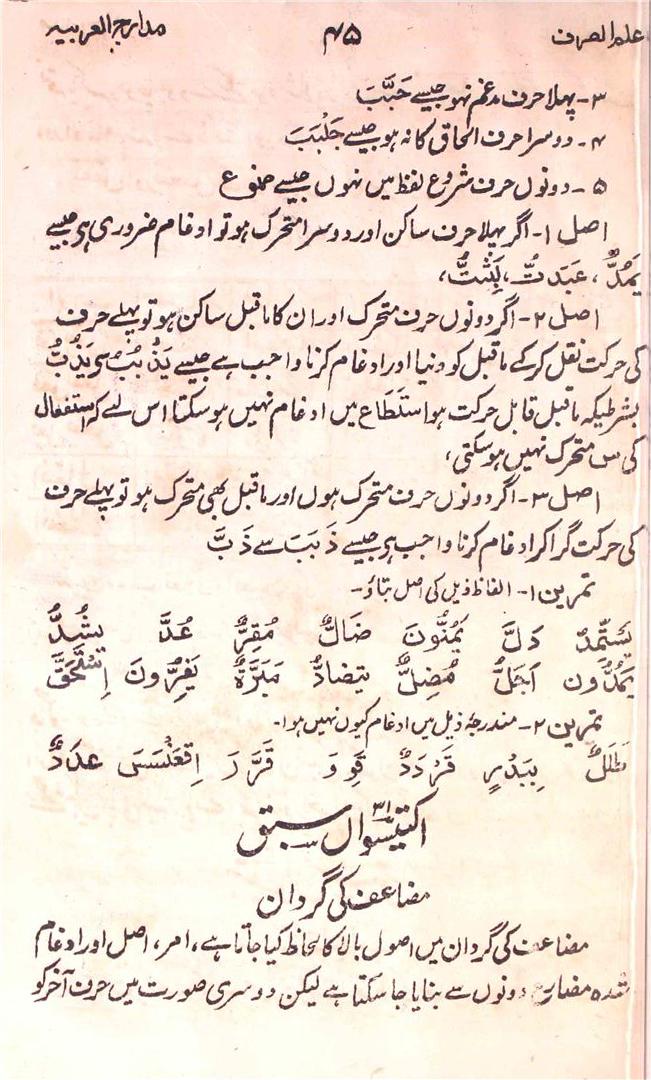 علم الصرف ۴۵ مدارج العربیہ
۳- پہلا حرف مدغم نہو جیسے حَبَّبَ
۴- دوسرا حرف الحاق کا نہ ہو جیسے جَلْبَبَ
۵- دونوں حرف شروع لفظ میں نہوں جیسے
اصل ۱- اگر پہلا حرف ساکن اور دوسرا متحرک ہو تو ادغام ضروری ہی جیسے
یَمُدُّ، عَبَدتُّ، لَبِثتُّ،
اصل ۲- اگر دونوں حرف متحرک اور ان کا ماقبل ساکن ہو تو پہلے حرف
کی حرکت نقل کر کے ماقبل کو دنیا اور ادغام کرنا واجب ہے جیسے یَذْبُبُ سے یَذُبُّ
بشرطیکہ ماقبل قابل حرکت ہو استَطَاع میں ادغام نہیں ہو سکتا اس لئے کہ استفعال
کی س متحرک نہیں ہو سکتی،
اصل ۳- اگر دونوں حرف متحرک ہوں اور ماقبل بھی متحرک ہو تو پہلے حرف
کی حرکت گرا کر ادغام کرنا واجب ہی جیسے ذَبَبَ سے ذَبَّ
تمرین ۱- الفاظ ذیل کی اصل بتاؤ-
یَسْتَمِدُّ دَلَّ یَمُنُّونَ ضَالٌّ مُقِرٌّ عُدَّ یشُدُّ
یَمُدُّون اَجَلُّ مُضِلٌّ یتضادُّ مَبَرَّةٌ یَفِرُّونَ اِسْتَحَقَّ
تمرین ۲- مندرجۂ ذیل میں ادغام کیوں نہیں ہوا-
طَلَلٌ بِبَدْرٍ قَرْدَدٌ قَوِوَ قَرَّرَ اِقعَنْسَسَ عدَدٌ
اکتیسواں ۳۱ سبق
مضاعف کی گردان
مضاعف کی گردان میں اصول بالا کا لحاظ کیا جاتا ہے، امر، اصل اور ادغام
شدہ مضارع دونوں سے بنایا جا سکتا ہے لیکن دوسری صورت میں حرف آخر کو